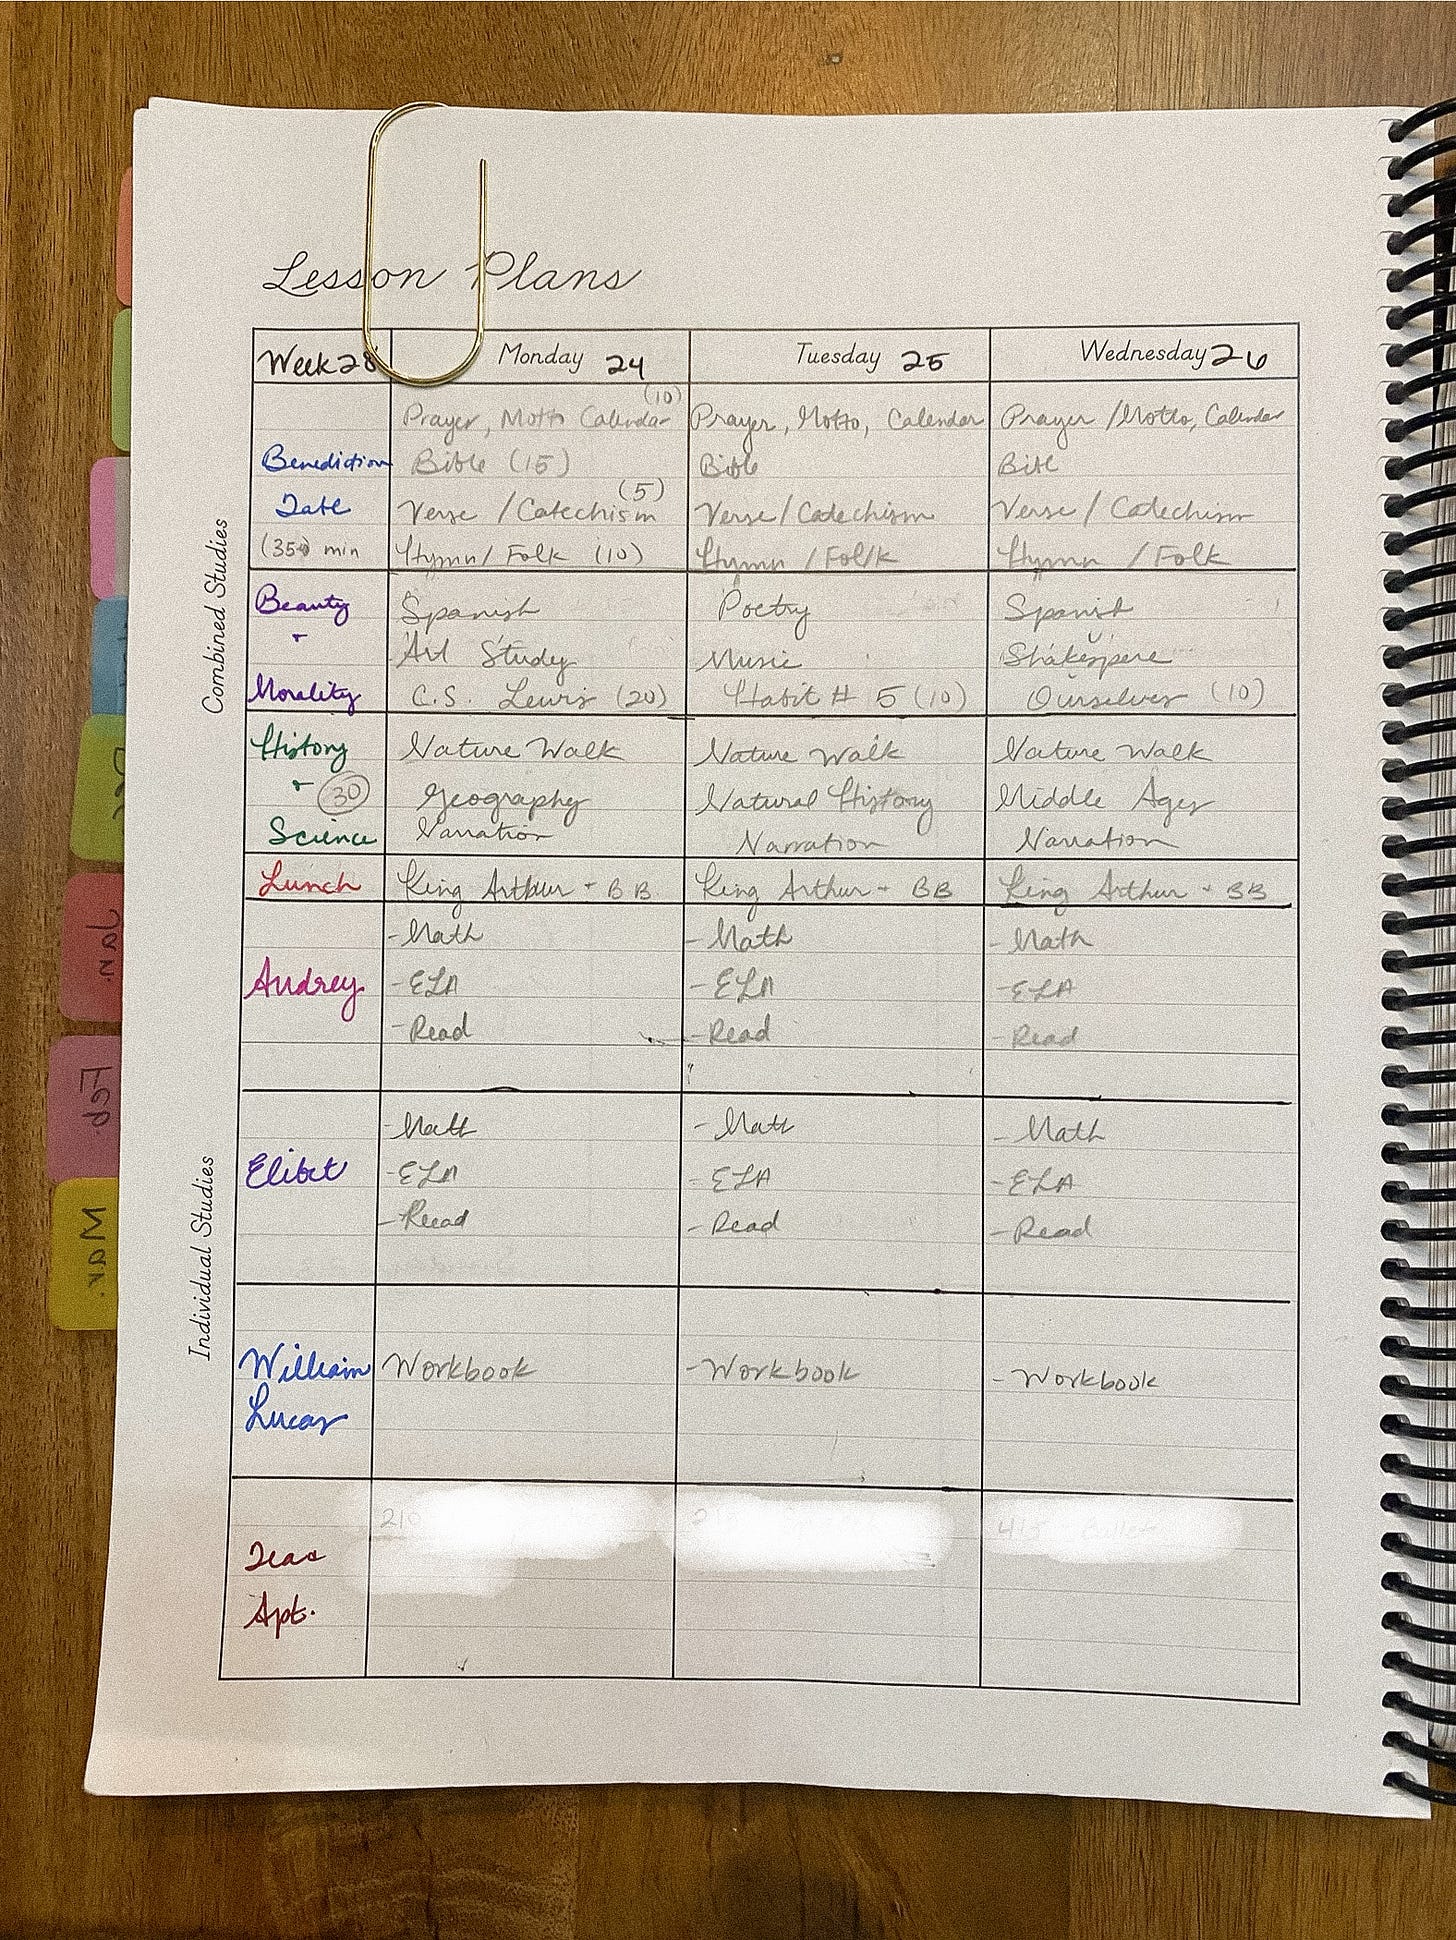 Lesson Plans
Week 28 Monday 24 Tuesday 25 Wednesday 26
(10)
Prayer, Motto Calendar Prayer, Motto, Calendar Prayer / Motto, Calendar
Benediction Bible (15) Bible Bible
(5)
Verse / Catechism Verse / Catechism Verse / Catechism
(35) min Hymn / Folk (10) Hymn / Folk Hymn / Folk
Combined Studies
Beauty Spanish Poetry Spanish
+ Art Study Music Shakespere
Morality C.S. Lewis (20) Habit # 5 (10) Ourselves (10)
History Nature Walk Nature Walk Nature Walk
+ 30 Geography Natural History Middle Ages
Science Narration Narration Narration
Lunch King Arthur + BB King Arthur + BB King Arthur + BB
- Math - Math - Math
Audrey - ELA - ELA - ELA
- Read - Read - Read
Individual Studies
- Math - Math - Math
Elibet - ELA - ELA - ELA
- Read - Read - Read
William Workbook - Workbook - Workbook
Lucas
Apt.
Jan.
Feb.
Mar.